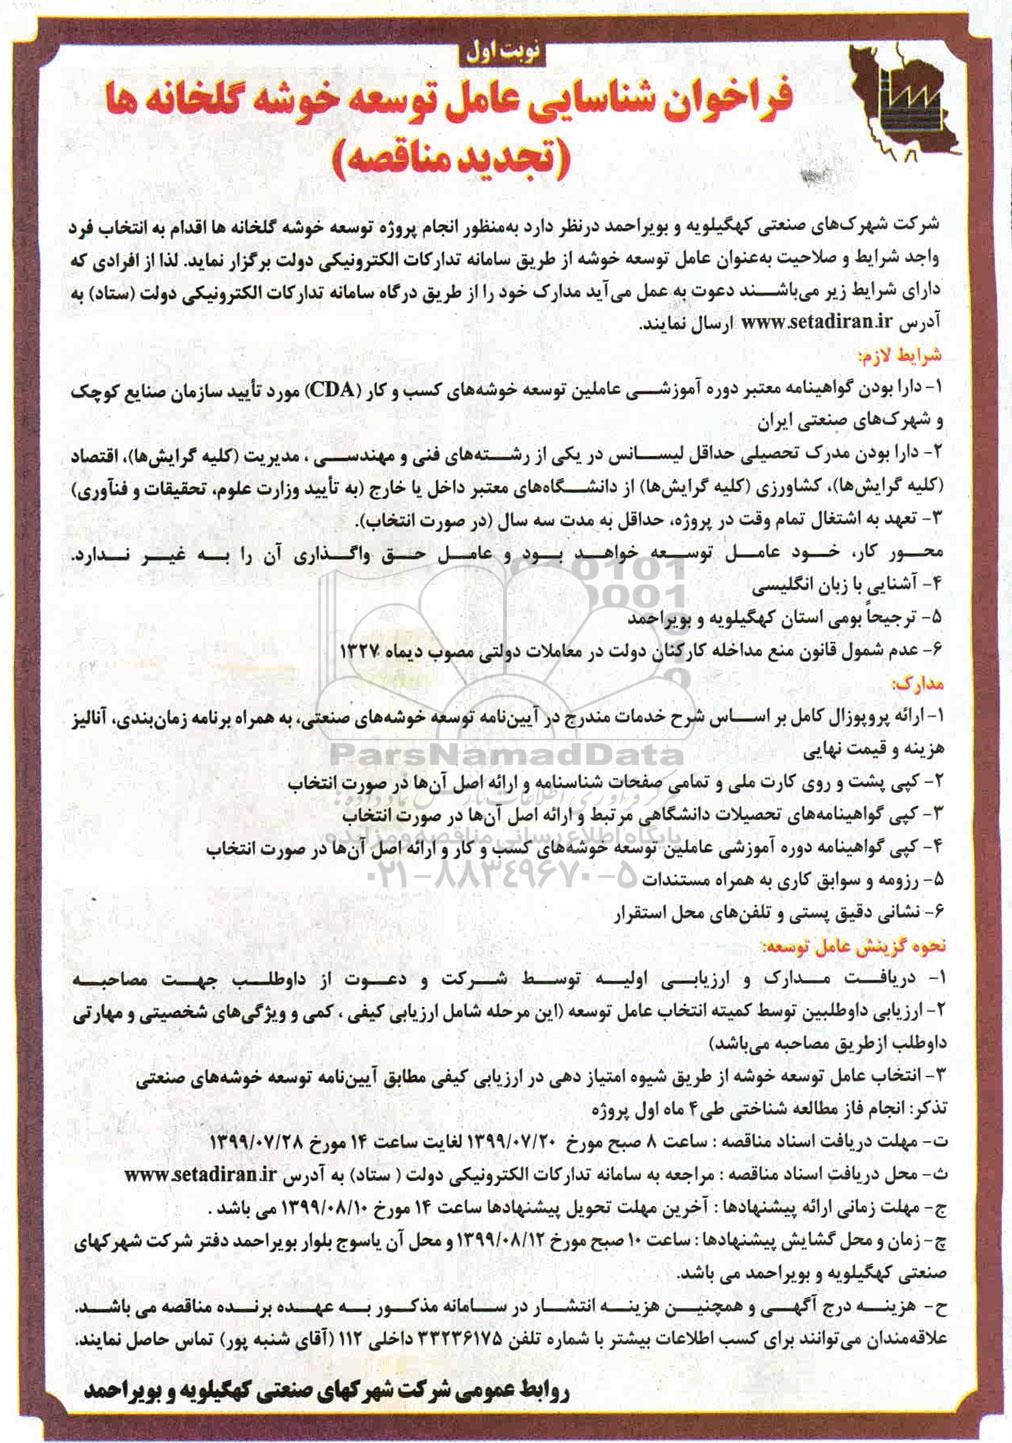 نوبت اول
فراخوان شناسایی عامل توسعه خوشه گلخانه ها
(تجدید مناقصه)
شرکت شهرک‌های صنعتی کهگیلویه و بویراحمد درنظر دارد به‌منظور انجام پروژه توسعه خوشه گلخانه ها اقدام به انتخاب فرد
واجد شرایط و صلاحیت به‌عنوان عامل توسعه خوشه از طریق سامانه تدارکات الکترونیکی دولت برگزار نماید. لذا از افرادی که
دارای شرایط زیر می‌باشند دعوت به عمل می‌آید مدارک خود را از طریق درگاه سامانه تدارکات الکترونیکی دولت (ستاد) به
آدرس www.setadiran.ir ارسال نمایند.
شرایط لازم:
۱- دارا بودن گواهینامه معتبر دوره آموزشی عاملین توسعه خوشه‌های کسب و کار (CDA) مورد تأیید سازمان صنایع کوچک
و شهرک‌های صنعتی ایران
۲- دارا بودن مدرک تحصیلی حداقل لیسانس در یکی از رشته‌های فنی و مهندسی ، مدیریت (کلیه گرایش‌ها)، اقتصاد
(کلیه گرایش‌ها)، کشاورزی (کلیه گرایش‌ها) از دانشگاه‌های معتبر داخل یا خارج (به تأیید وزارت علوم، تحقیقات و فنآوری)
۳- تعهد به اشتغال تمام وقت در پروژه، حداقل به مدت سه سال (در صورت انتخاب).
محور کار، خود عامل توسعه خواهد بود و عامل حق واگذاری آن را به غیر ندارد.
۴- آشنایی با زبان انگلیسی
۵- ترجیحاً بومی استان کهگیلویه و بویراحمد
۶- عدم شمول قانون منع مداخله کارکنان دولت در معاملات دولتی مصوب دیماه ۱۳۲۷
مدارک:
۱- ارائه پروپوزال کامل بر اساس شرح خدمات مندرج در آیین‌نامه توسعه خوشه‌های صنعتی، به همراه برنامه زمان‌بندی، آنالیز
هزینه و قیمت نهایی
ParsNamadData
۲- کپی پشت و روی کارت ملی و تمامی صفحات شناسنامه و ارائه اصل آن‌ها در صورت انتخاب
۳- کپی گواهینامه‌های تحصیلات دانشگاهی مرتبط و ارائه اصل آن‌ها در صورت انتخاب
پایگاه اطلاع رسانی مناقصه و مزایده
۴- کپی گواهینامه دوره آموزشی عاملین توسعه خوشه‌های کسب و کار و ارائه اصل آن‌ها در صورت انتخاب
۰۲۱-۸۸۳۴۹۶۷۰-۵
۵- رزومه و سوابق کاری به همراه مستندات
۶- نشانی دقیق پستی و تلفن‌های محل استقرار
نحوه گزینش عامل توسعه:
۱- دریافت مدارک و ارزیابی اولیه توسط شرکت و دعوت از داوطلب جهت مصاحبه
۲- ارزیابی داوطلبین توسط کمیته انتخاب عامل توسعه (این مرحله شامل ارزیابی کیفی ، کمی و ویژگی‌های شخصیتی و مهارتی
داوطلب ازطریق مصاحبه می‌باشد)
۳- انتخاب عامل توسعه خوشه از طریق شیوه امتیاز دهی در ارزیابی کیفی مطابق آیین‌نامه توسعه خوشه‌های صنعتی
تذکر: انجام فاز مطالعه شناختی طی ۴ ماه اول پروژه
ت- مهلت دریافت اسناد مناقصه : ساعت ۸ صبح مورخ ۱۳۹۹/۰۷/۲۰ لغایت ساعت ۱۴ مورخ ۱۳۹۹/۰۷/۲۸
ث- محل دریافت اسناد مناقصه : مراجعه به سامانه تدارکات الکترونیکی دولت ( ستاد) به آدرس www.setadiran.ir
ج- مهلت زمانی ارائه پیشنهادها : آخرین مهلت تحویل پیشنهادها ساعت ۱۴ مورخ ۱۳۹۹/۰۸/۱۰ می باشد .
چ- زمان و محل گشایش پیشنهادها : ساعت ۱۰ صبح مورخ ۱۳۹۹/۰۸/۱۲ و محل آن یاسوج بلوار بویراحمد دفتر شرکت شهرکهای
صنعتی کهگیلویه و بویراحمد می باشد.
ح- هزینه درج آگهی و همچنین هزینه انتشار در سامانه مذکور به عهده برنده مناقصه می باشد.
علاقه‌مندان می‌توانند برای کسب اطلاعات بیشتر با شماره تلفن ۳۳۲۳۶۱۷۵ داخلی ۱۱۲ (آقای شنبه پور) تماس حاصل نمایند.
روابط عمومی شرکت شهرکهای صنعتی کهگیلویه و بویراحمد